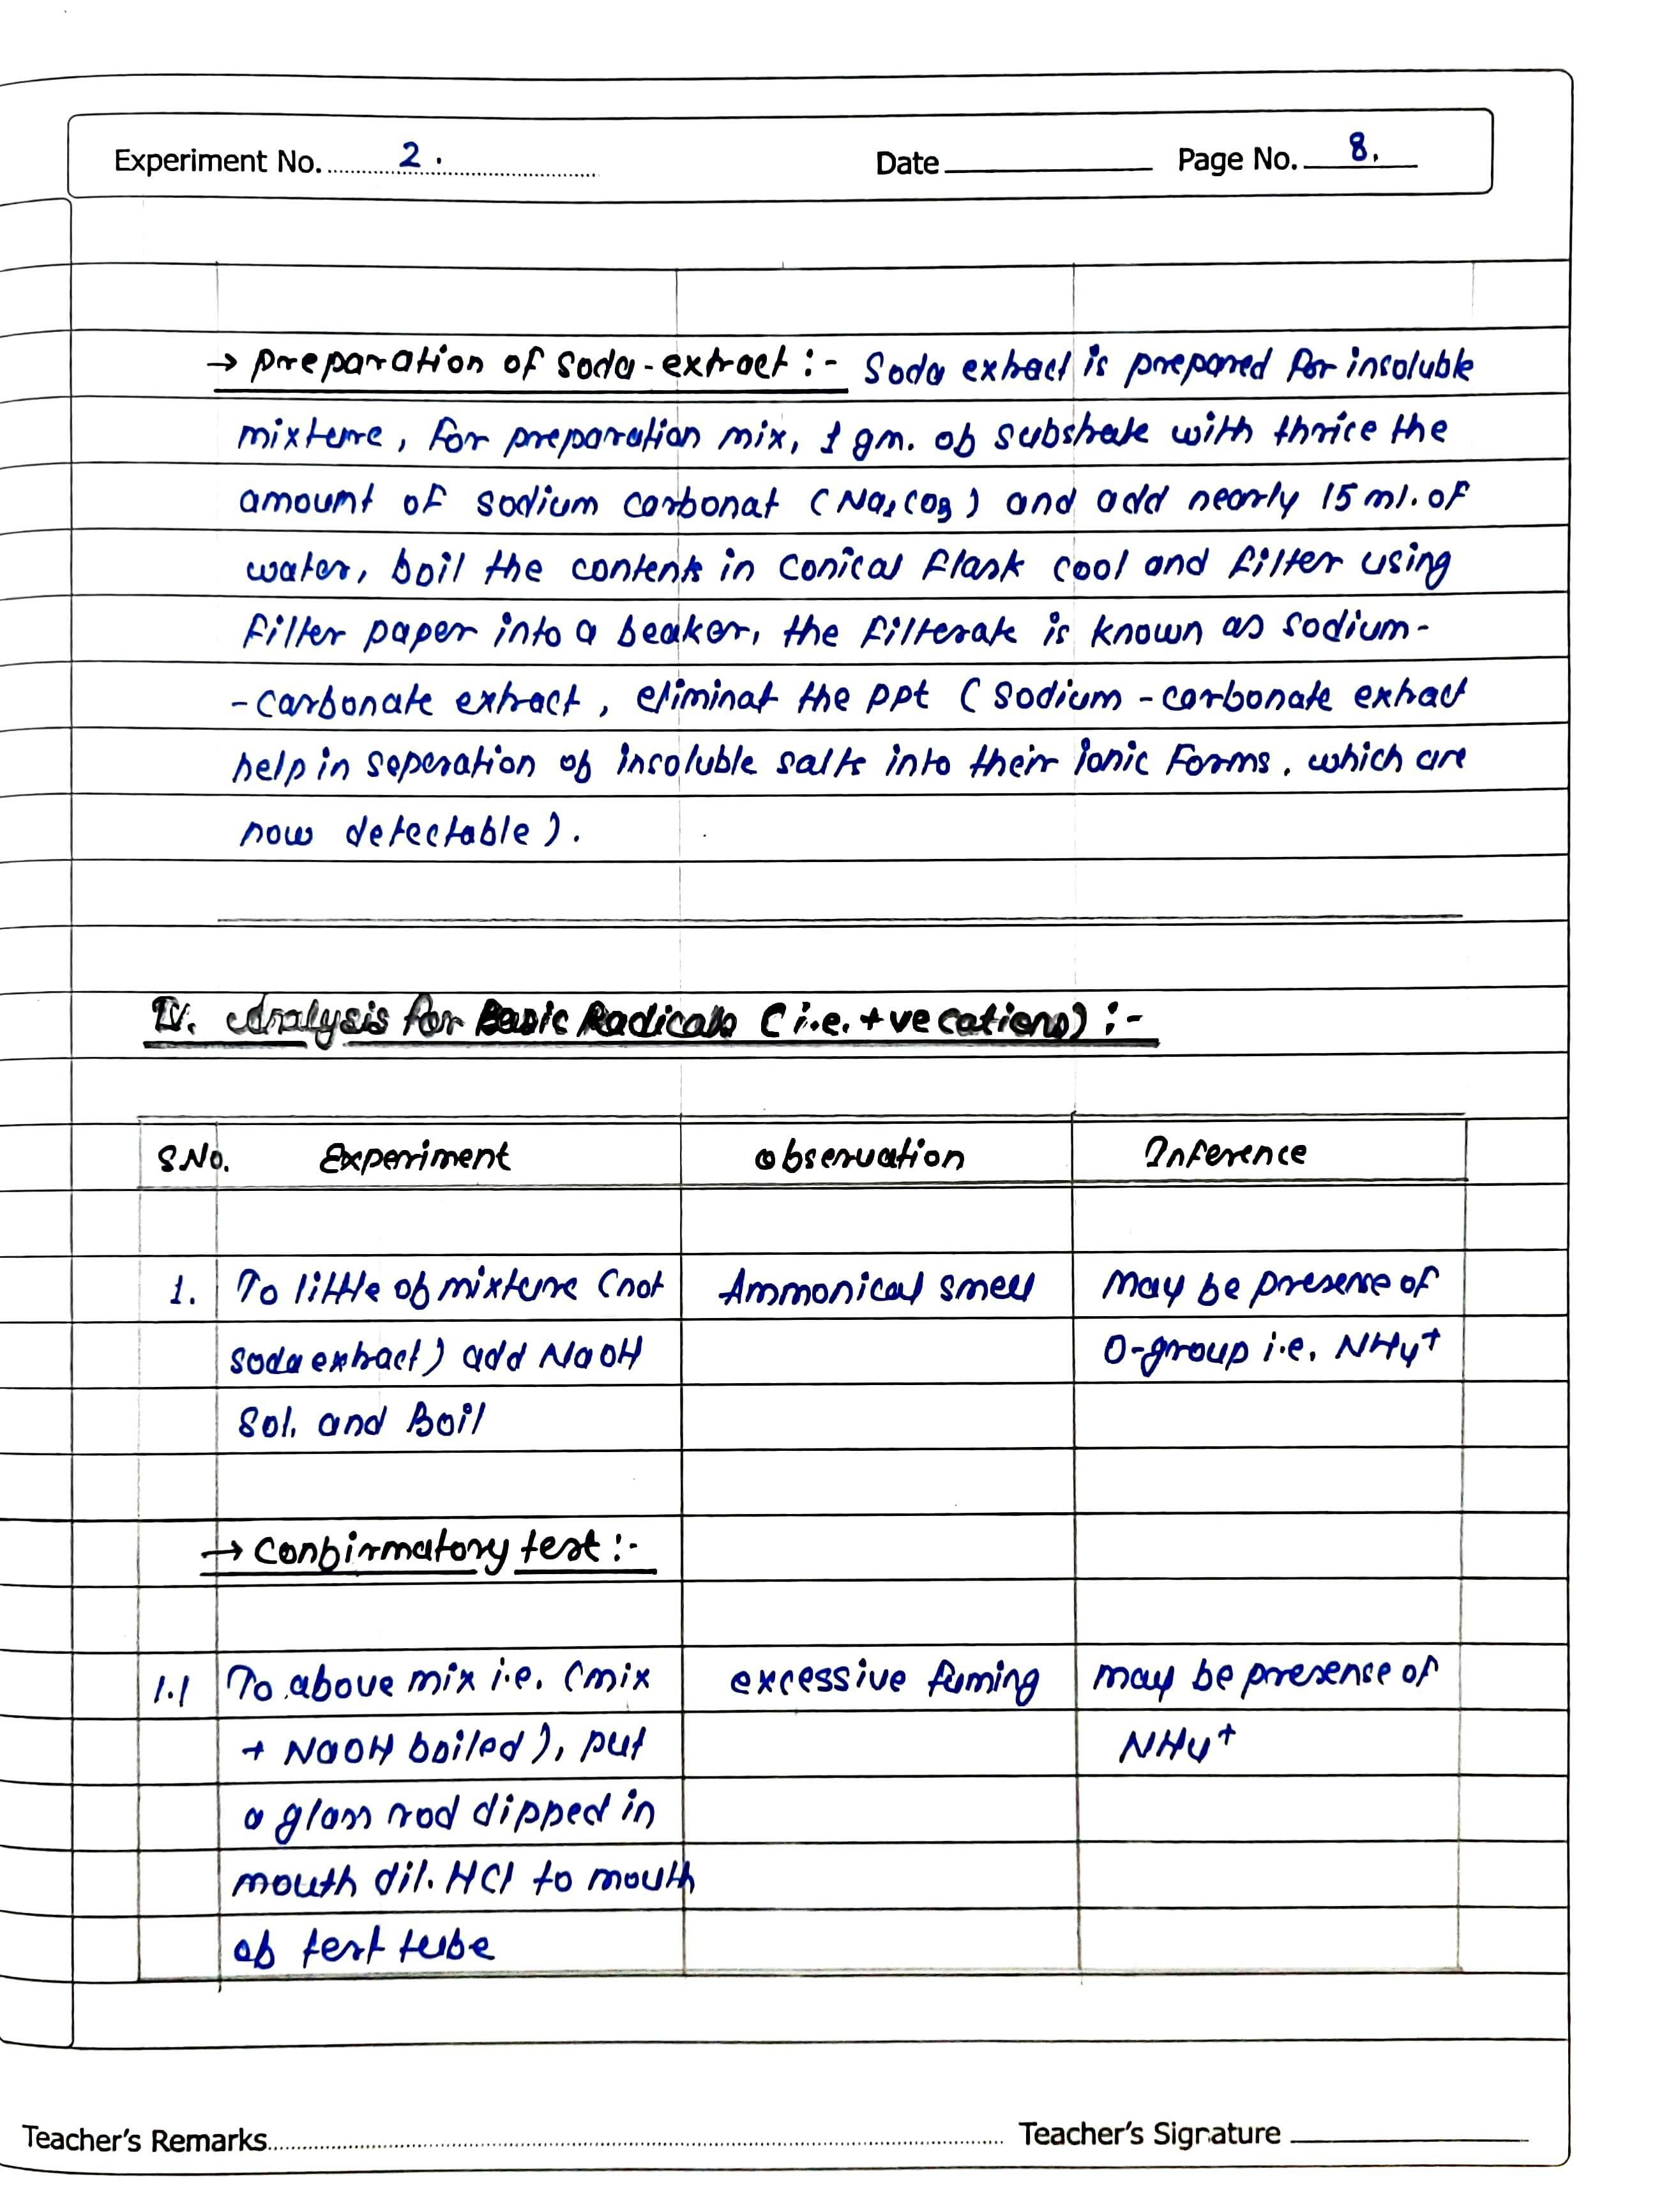 Experiment No. 2. Date Page No. 8.
→ Preparation of soda-extract :- Soda extract is prepared for insoluble
mixture, for preparation mix, 1 gm. of substrate with thrice the
amount of sodium carbonat (Na2CO3) and add nearly 15 ml. of
water, boil the contents in conical flask cool and filter using
filter paper into a beaker, the filterate is known as sodium-
-carbonate extract, eliminat the ppt (sodium-carbonate extract
help in seperation of insoluble salts into their ionic forms, which are
now detectable).
IV. Analysis for Basic Radicals (i.e. +ve cations) :-
S.No. Experiment Observation Inference
1. To little of mixture (not Ammonical smell May be presense of
soda extract) add NaOH O-group i.e. NH4+
Sol. and Boil
→ Confirmatory test :-
1.1 To above mix i.e. (mix excessive fuming may be presense of
+ NaOH boiled), put NH4+
a glass rod dipped in
mouth dil. HCl to mouth
of test tube
Teacher's Remarks Teacher's Signature